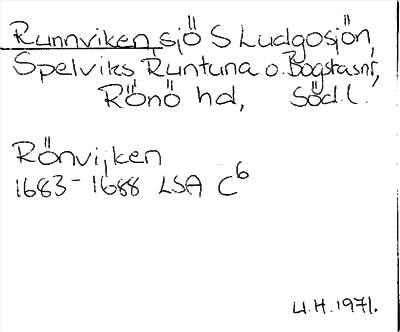 Runnviken, sjö S Ludgosjön,
Spelviks, Runtuna o. Bogstasnr,
Rönö hd, Söd.l.
Rönvijken
1683-1688 LSA C6
U.H.1971.